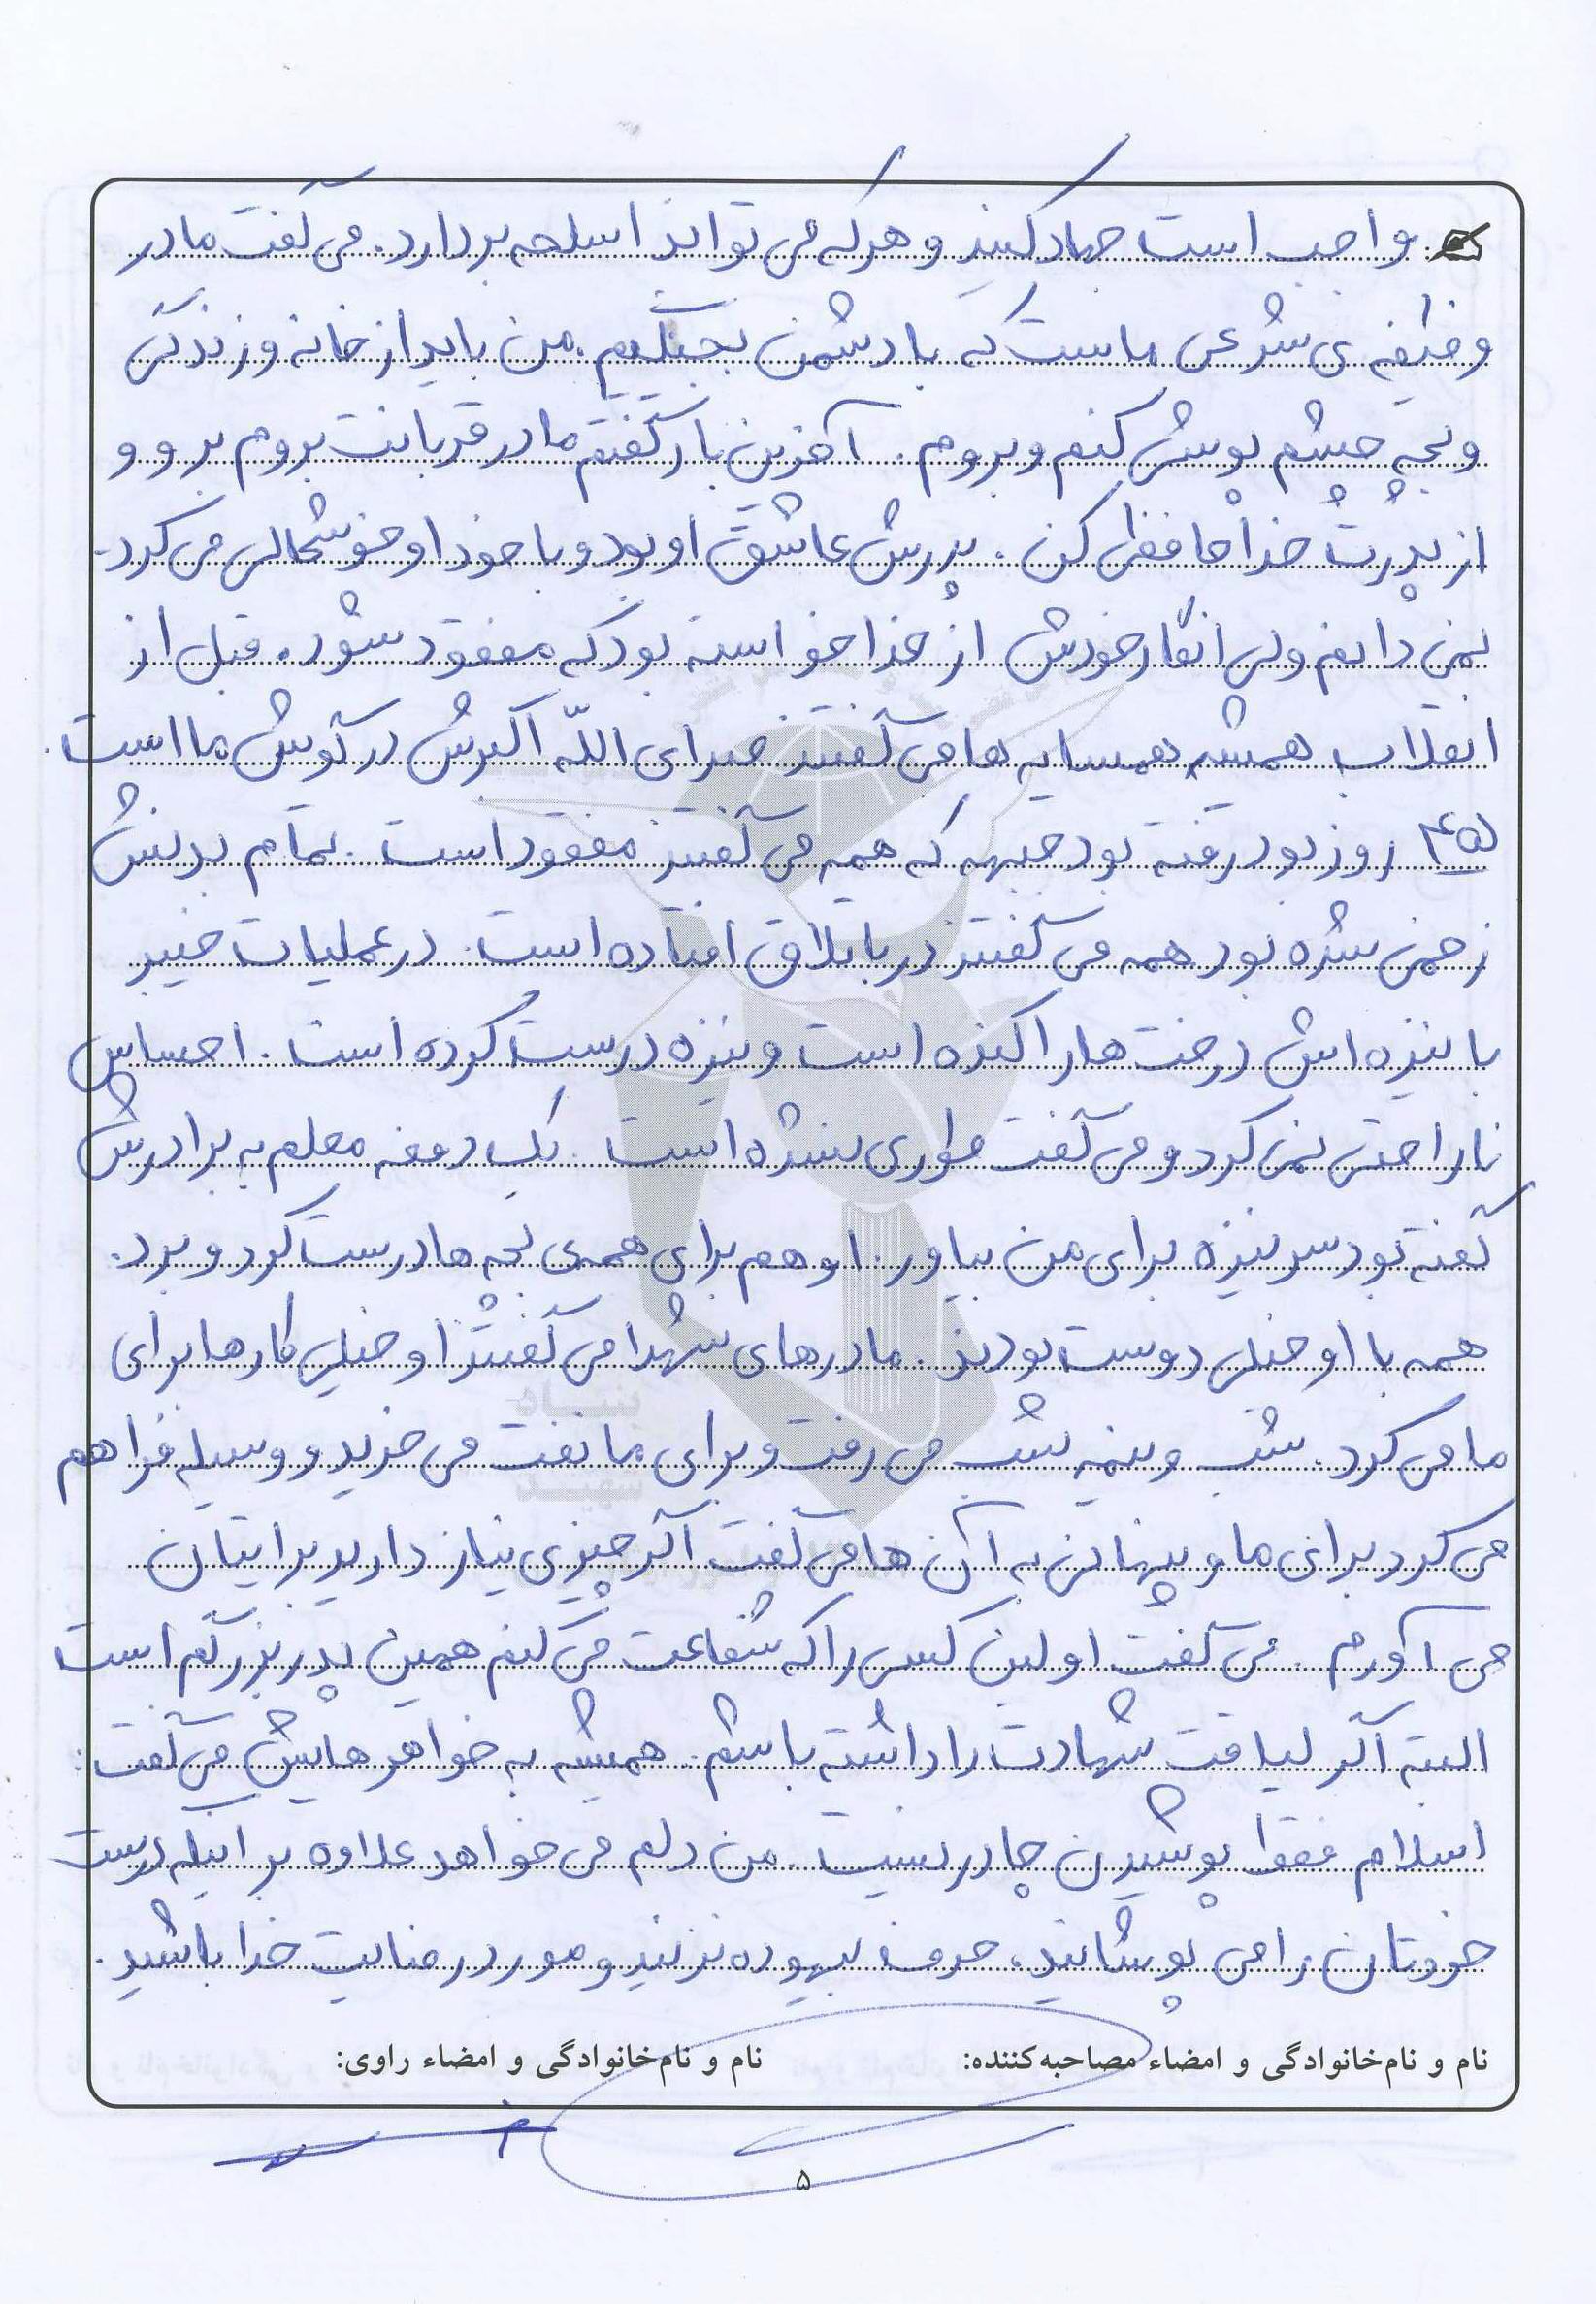 واجب است جهاد کنید و هر که می تواند اسلحه بردارد. می گفت مادر
وظیفه ی شرعی ماست که با دشمن بجنگیم. من باید از خانه و زندگی
و بچه چشم پوشی کنم و بروم. آخرین بار گفتم مادر قربانت بروم برو و
از پدرت خداحافظی کن. پدرش عاشق او بود و با خود او خوشحالی می کرد.
نمی دانم ولی انگار خودش از خدا خواسته بود که مفقود شود. قبل از
انقلاب همیشه همسایه ها می گفتند صدای الله اکبرش در گوش ما است.
۴۵ روز بود رفته بود جبهه که همه می گفتند مفقود است. تمام بدنش
زخمی شده بود همه می گفتند در باتلاق افتاده است. در عملیات خیبر
با نیزه اش درخت ها را کنده است و نیزه درست کرده است. احساس
ناراحتی نمی کرد و می گفت طوری نشده است. یک دفعه معلم به برادرش
گفته بود سر نیزه برای من بیاور. او هم برای همه ی بچه ها درست کرد و برد.
همه با او خیلی دوست بودند. مادرهای شهدا می گفتند او خیلی کارها برای
ما می کرد. شب و نیمه شب می رفت و برای ما نفت می خرید و وسیله فراهم
می کرد برای ما و پنهانی به آن ها می گفت اگر چیزی نیاز دارید برایتان
می آورم. می گفت اولین کسی را که شفاعت می کنم همین پدربزرگم است
البته اگر لیاقت شهادت را داشته باشم. همیشه به خواهرهایش می گفت:
اسلام فقط پوشیدن چادر نیست. من دلم می خواهد علاوه بر اینکه درست
خودتان را می پوشانید، حرف بیهوده نزنید و مورد رضایت خدا باشید.
نام و نام‌خانوادگی و امضاء مصاحبه‌کننده: نام و نام‌خانوادگی و امضاء راوی:
۵